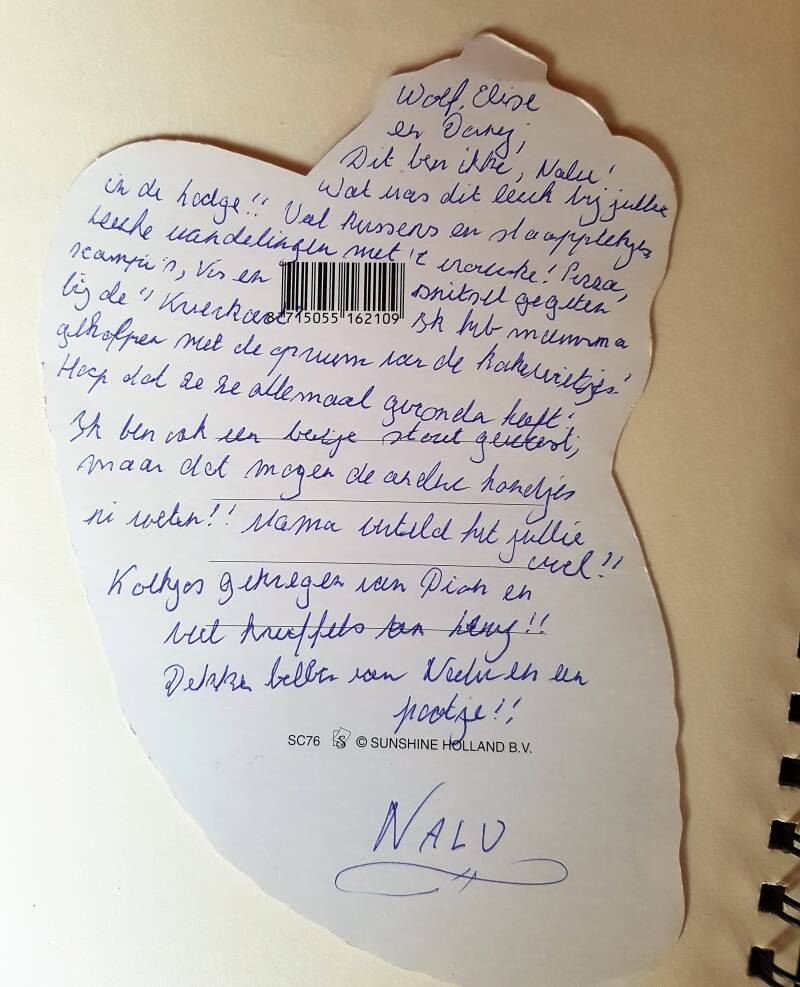 Wolf, Elise
en Danej,
Dit ben ikke, Nalu!
Wat was dit leuk bij jullie
in de lodge!! Veel kussens en slaapplekjes
leuke wandelingen met 't vrouwke! Pizza,
scampi's, Vis en snitsel gegeten
bij de " Ik heb mamma
8 715055 162109
geholpen met de opruim van de kakavietjes!
Hoop dat ze ze allemaal gevonden heeft!
Ik ben ook een beetje stout geweest,
maar dat mogen de andere hondjes
ni weten!! Mama verteld het jullie
wel!!
Koekjes gekregen van Dion en
veel knuffels van
Dikke bellen van Nalu en een
pootje!!
SC76 © SUNSHINE HOLLAND B.V.
NALU